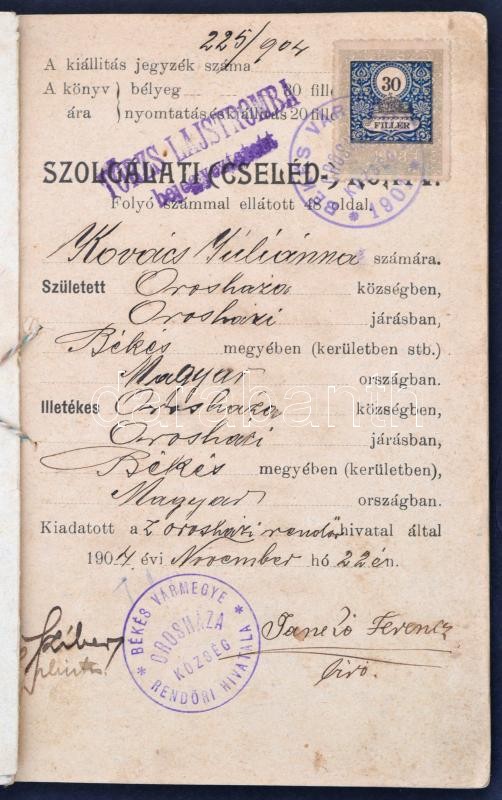 225/904
A kiállitás jegyzék száma
A könyv bélyeg 30 fillér
ára nyomtatás és kiállitás 20 fillér
30
FILLÉR
TÖRZS LAJSTROMBA
SZOLGÁLATI (CSELÉD-) KÖNYV.
BÉKÉS VÁR
Folyó számmal ellátott 48 oldal.
Kovács Júliánna számára.
Született Orosháza községben,
Orosházi járásban,
Békés megyében (kerületben stb.)
Magyar országban.
darabanth
Illetékes Orosháza községben,
Orosházi járásban,
Békés megyében (kerületben),
Magyar országban.
Kiadatott a z orosházi rendőr hivatal által
1904 évi November hó 22 én.
BÉKÉS VÁRMEGYE
OROSHÁZA
KÖZSÉG
RENDŐRI HIVATALA
Ferencz
biró